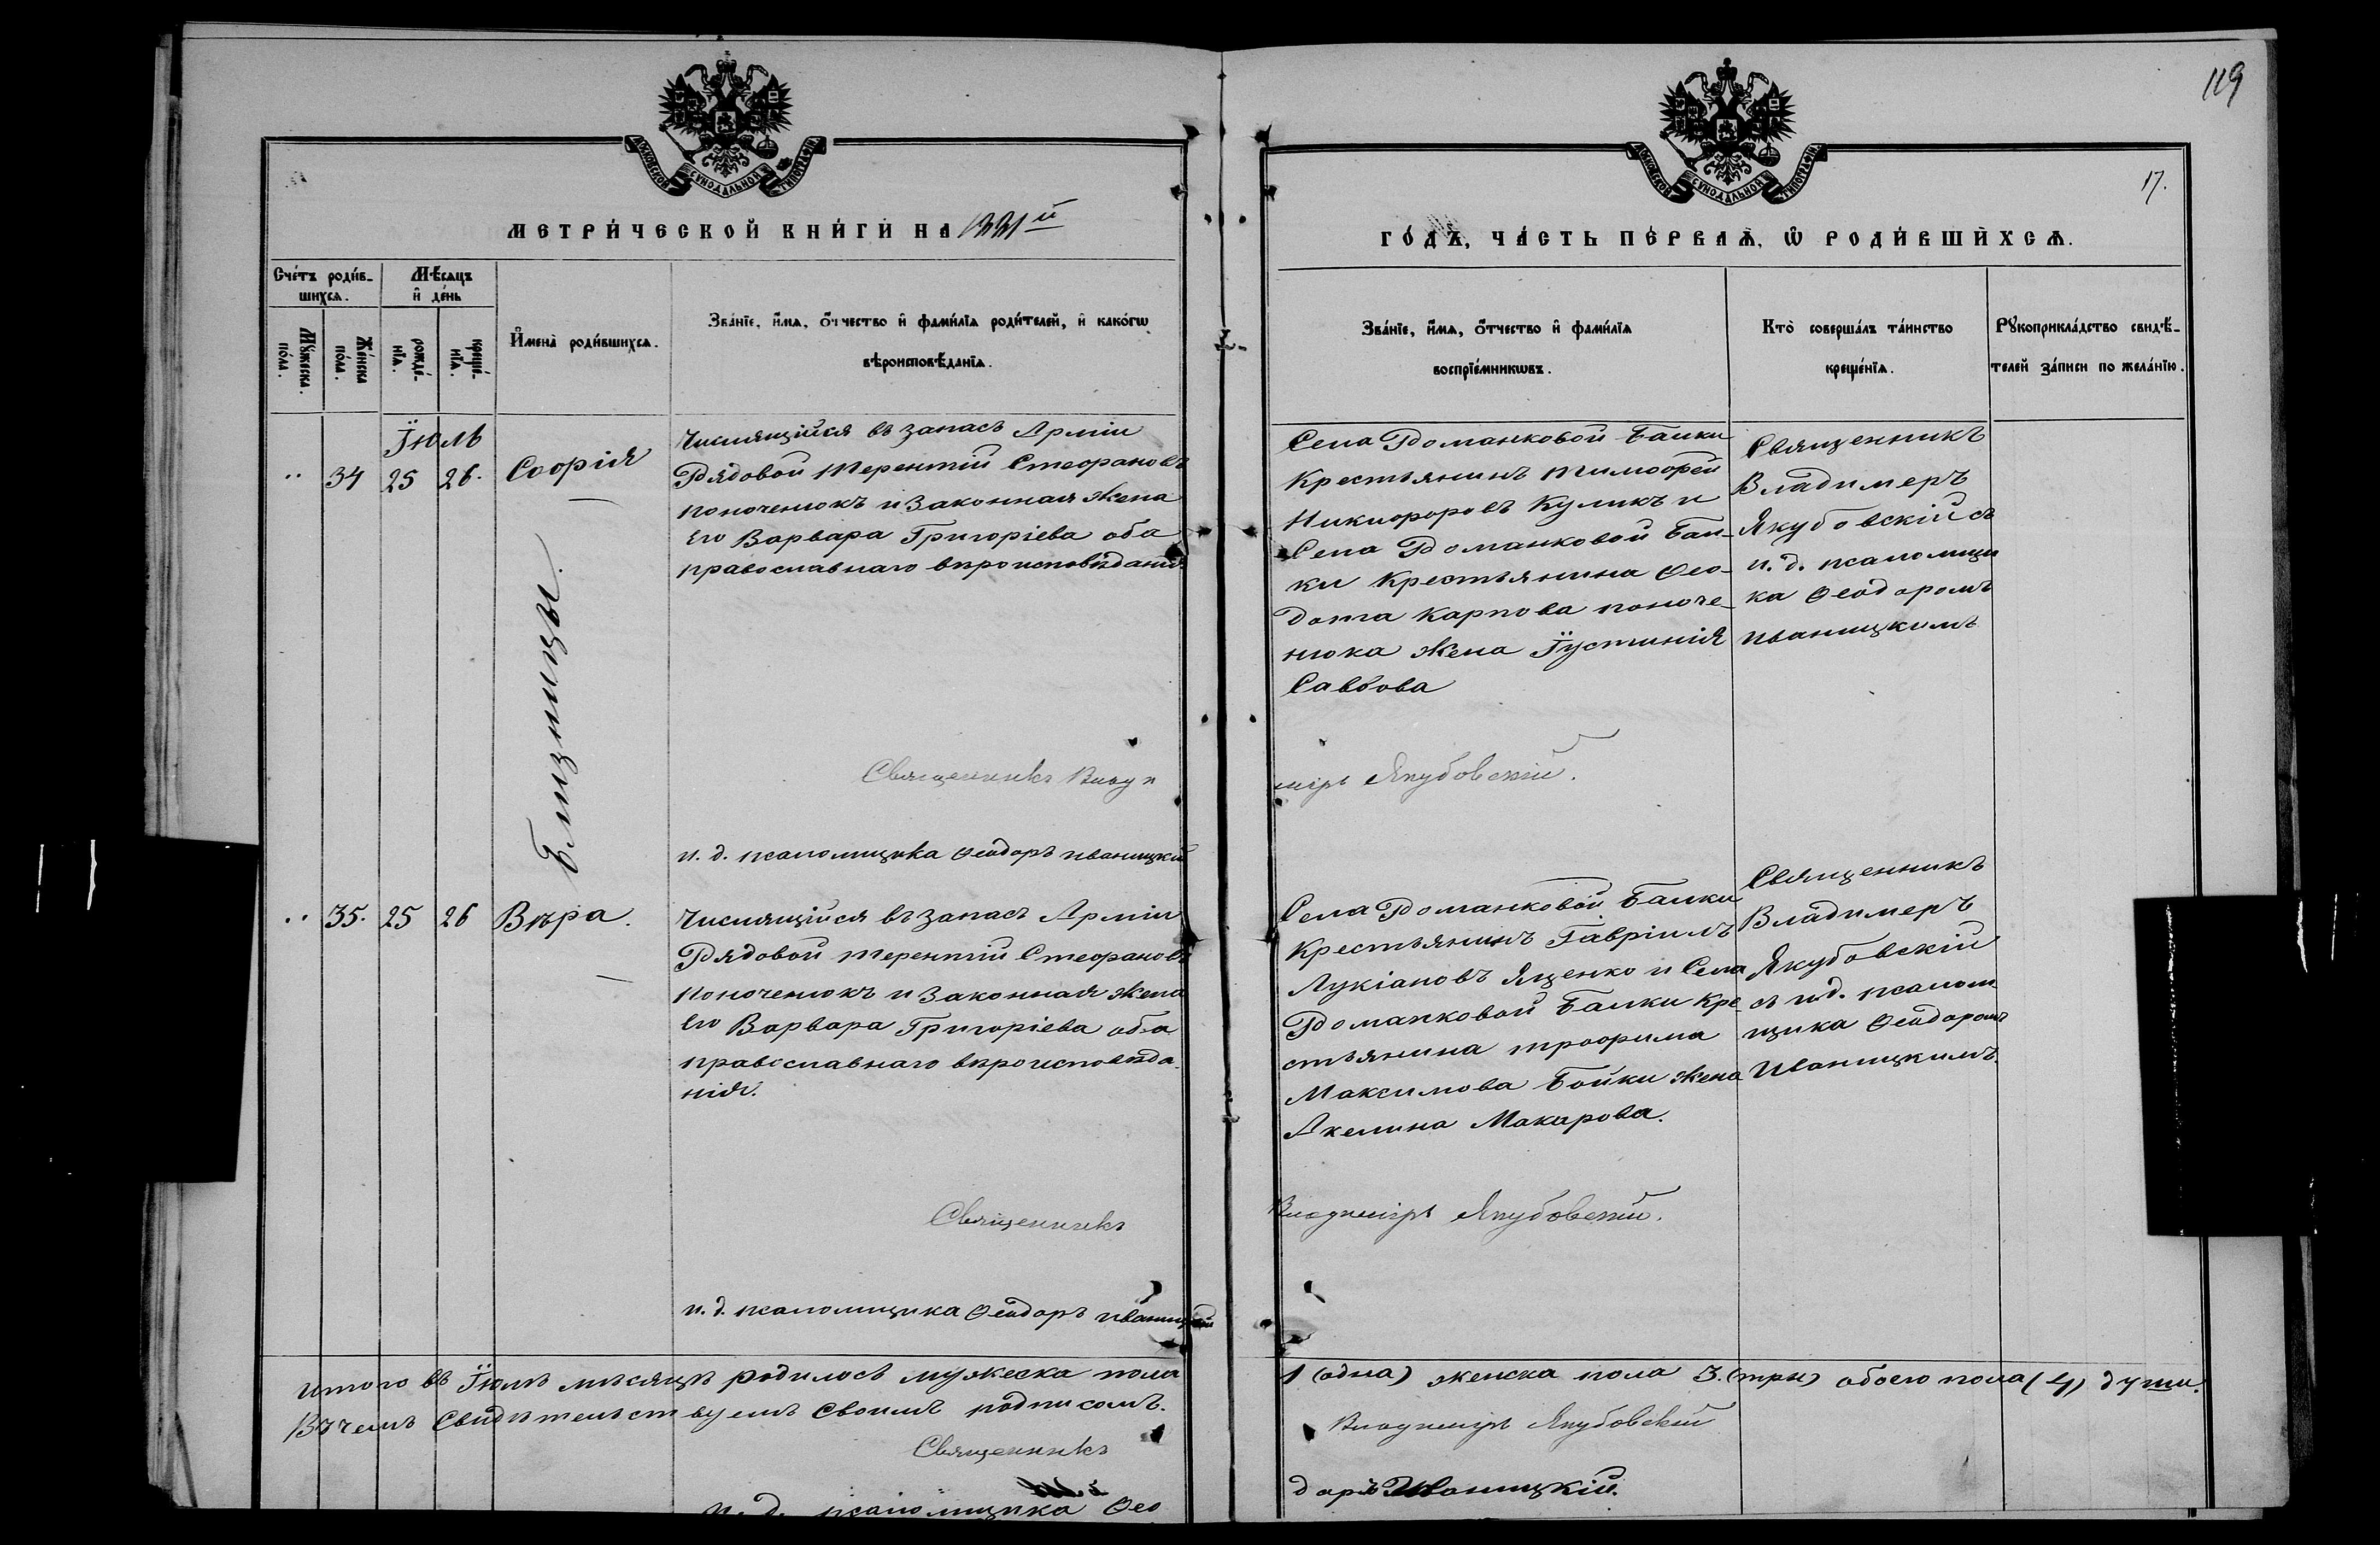 119
17.
МОСКОВСКОЙ СѴНОДАЛЬНОЙ ТИПОГРАФІИ
МОСКОВСКОЙ СѴНОДАЛЬНОЙ ТИПОГРАФІИ
МЕТРИ́ЧЕСКОЙ КНИ́ГИ НА 1881й
ГО́ДЪ, ЧА́СТЬ ПЕ́РВАѦ, Ѡ РОДИ́ВШИХСѦ.
Сче́тъ роди́в-
шихсѧ.
Мѣ́сяцъ
и де́нь
Мꙋ́жеска по́ла.
Же́нска по́ла.
рожде́-нїѧ.
креще́-нїѧ.
Имена̀ роди́вшихсѧ.
Зва́нїе, и́мѧ, о́тчество и фами́лїѧ роди́телей, и како́гѡ
вѣроисповѣ́данїѧ.
Зва́нїе, и́мѧ, о́тчество и фами́лїѧ
воспрїе́мникѡвъ.
Кто̀ соверша́лъ та́инство
креще́нїѧ.
Рꙋкоприкла́дство свидѣ́-
телей за́писи по жела́нїю.
Їюль
" 34 25 26. Софія
Близницы.
Числящійся въ запасѣ Арміи
Рядовой Терентій Стефановъ
Поноченюкъ и законная жена
его Варвара Григоріева оба
православнаго вѣроисповѣданія.
Села Романковой Балки
Крестьянинъ Тимофей
Никифоровъ Куликъ и
Села Романковой Бал-
ки Крестьянина Ѳео-
дота Карпова Поноче-
нюка жена Їустинія
Саввова
Священникъ
Владимеръ
Якубовскій съ
и. д. псаломщи
ка Ѳеодоромъ
Иваницкимъ
Священникъ Влади
міръ Якубовскій.
и. д. псаломщика Ѳеодоръ Иваницкій
" 35. 25 26 Вѣра.
Числящійся въ запасѣ Арміи
Рядовой Терентій Стефановъ
Поноченюкъ и законная жена
его Варвара Григоріева оба
православнаго вѣроисповѣда
нія.
Села Романковой Балки
Крестьянинъ Гавріилъ
Лукіановъ Яценко и Села
Романковой Балки Кре
стьянина Трофима
Максимова Бойки жена
Акелина Макарова.
Священникъ
Владимеръ
Якубовскій
съ и.д. псалом
щика Ѳеодоромъ
Иваницкимъ.
Священникъ
Владиміръ Якубовскій.
и. д. псаломщика Ѳеодоръ Иваницкій
Итого въ Їюлѣ мѣсяцѣ родилось мужеска пола 1 (одна) женска пола 3. (три) обоего пола (4) души.
Въ чемъ Свидѣтельствуемъ своимъ подписомъ.
Священникъ Владиміръ Якубовскій
и. д. псаломщика Ѳео
доръ Иваницкій.